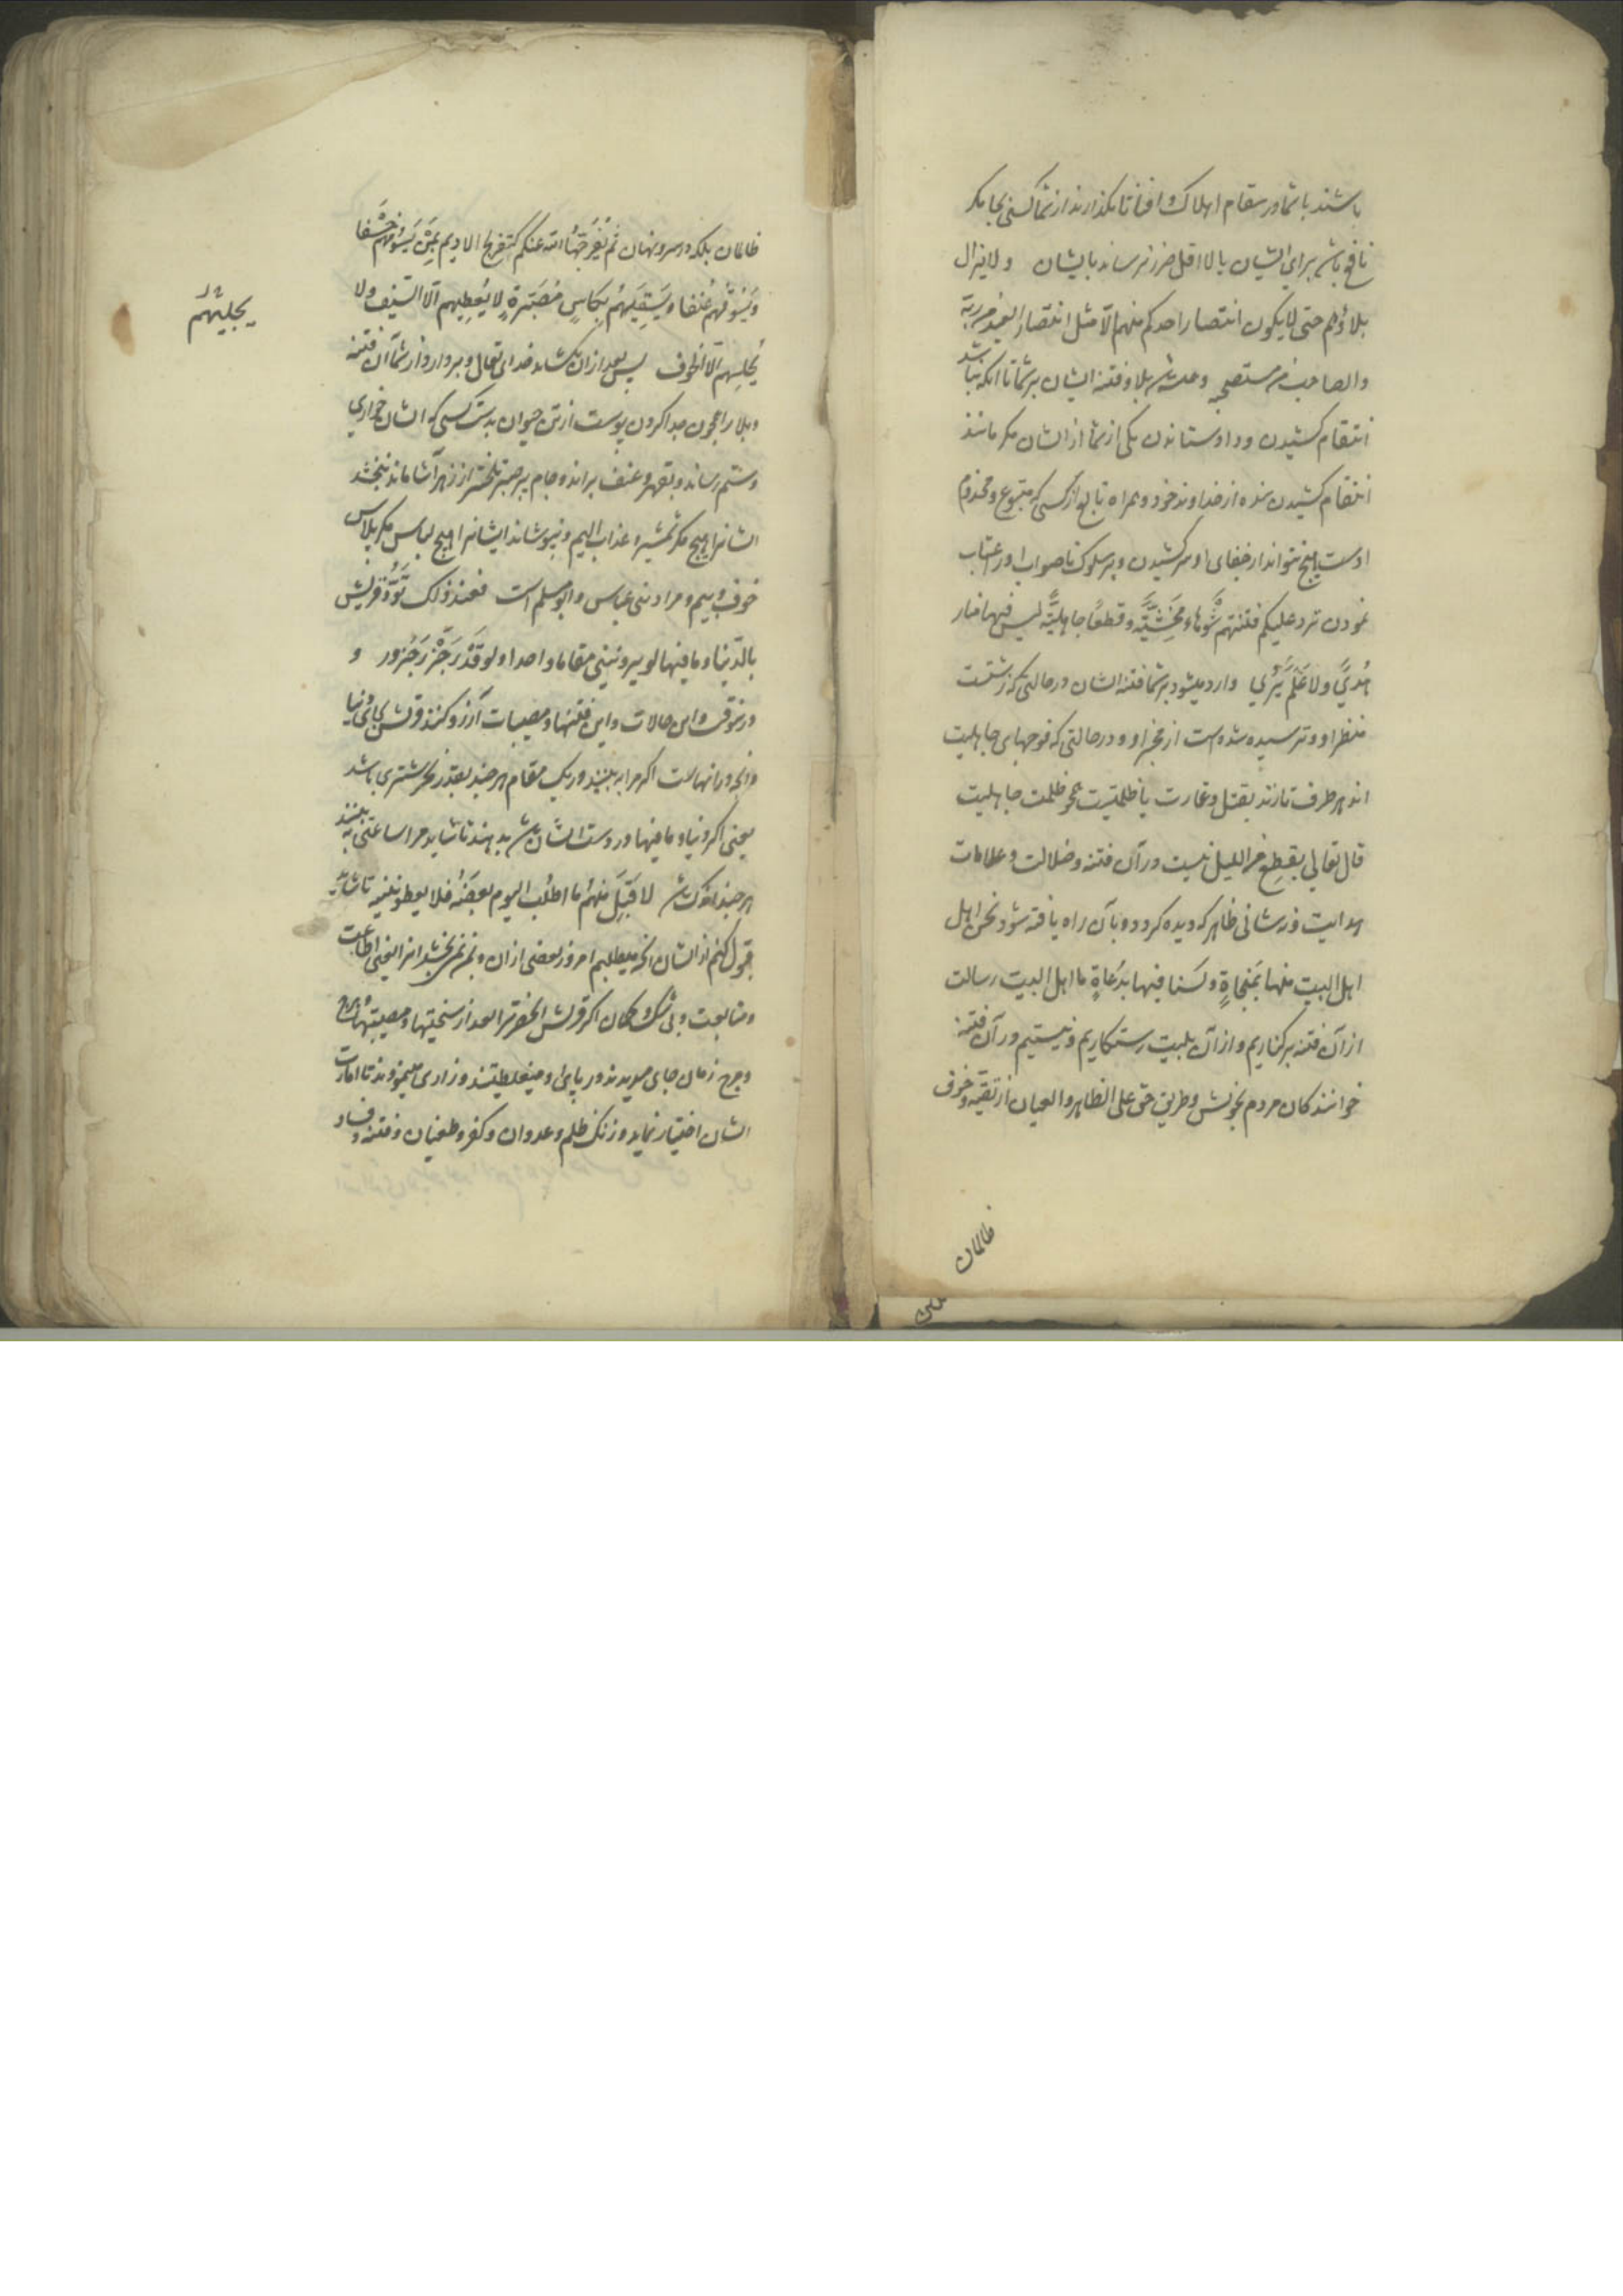 باشند باشما در مقام اهلاک و افنا تا نکذارند از شما کسی بجا مکر
نافع باشد برای ایشان یا لااقل ضرر نرساند بایشان ولا یزال
بلاؤهم حتی لا یکون انتصار احدکم منهم الّا مثل انتصار العبد من ربّه
والصاحب من مستصحبه و همیشه باشد بلا و فتنه ایشان بر شما تا انکه نباشد
انتقام کشیدن و داد ستاندن یکی از شما از ایشان مکر مانند
انتقام کشیدن بنده از خداوند خود و همراه تابع از کسی که متبوع و مخدوم
اوست هیچ نتواند از جفای او سر کشیدن و بر سلوک ناصواب او عتاب
نمودن ترد علیکم فتنتهم شَوهاءَ مَخشیّةً و قطعًا جاهلیّةً لیس فیها منار
هُدیً ولا عَلَم یُرٰی وارد میشود بر شما فتنه ایشان در حالتی که زشتست
منظر او و ترسیده شده است از مخبر او و در حالتی که فوجهای جاهلیت
اند هر طرف تازند بقتل و غارت یا ظلمتیست همچو ظلمت جاهلیت
قال تعالی بقِطعٍ من اللیل نیست در آن فتنه و ضلالت و علامات
هدایت و نه نشانی ظاهر که دیده کردد و بآن راه یافته شود نحن اهل
اهل البیت منها بمَنجاةٍ و لسنا فیها بدُعاةٍ ما اهل البیت رسالت
از آن فتنه بر کناریم و از آن بلیت رستکاریم و نیستیم در آن فتنه
خوانندکان مردم بخویش و طریق حق علی الظاهر والعیان از تقیّه و خوف
ظالمان
ظالمان بلکه در سر و نهان ثم یُفَرِّجُهَا الله عنکم کتفریج الادیم بمَن یَسُومُهم خَسْفا
وَیَسُوقُهم عُنفا و یَسقِیهم بِکَاسٍ مُصَبّرةٍ لا یُعطِیهم الّا السَّیف ولا
یُحلِسهم الّا الخوف پس بعد از ان بکشاید خدای تعالی و بردارد از شما آن فتنه
و بلا را همچون جدا کردن پوست از تن حیوان بدست کسی که ایشان خواری
و ستم رساند و بقهر و عنف براند و جام پر صبر تلختر از زهر آشاماند نبخشد
ایشانرا هیچ مکر شمشیر و عذاب الیم و نپوشاند ایشانرا هیچ لباس مکر پلاس
خوف و بیم و مراد بنی عباس و ابو مسلم است فعند ذلک تَوَدُّ قریش
بالدّنیا و ما فیها لو یرونَنی مقاما واحدا و لو قَدْرَ جَزْرِ جَزُور و
در نوقت و این حالات و این فتنها و مصیبات آرزو کنند قریش بجای دنیا
و انچه در انهاست اکر مرا به بینند در یک مقام هر چند بقدر نحر شتری باشد
یعنی اکر دنیا و ما فیها در دست ایشان باشد بدهند تا شاید مرا ساعتی به بینند
هر چند اندک باشد لاَقبَلَ منهُم ما اطلُب الیوم بعضَهُ فلا یعطوننیه تا شاید
قبول کنم از ایشان انچه میطلبم امروز بعضی از ان و نمی بخشند انرا یعنی اطاعت
و متابعت و بی شک و کمان اکر قریش انحضرترا بعد از سختیها و مصیبتهای
و جرح زمان جای میدیدند در پای او میغلطیدند و زاری مینمودند تا امارت
ایشان اختیار نماید و زنک ظلم و عدوان و کفر و طغیان و فتنه و فساد